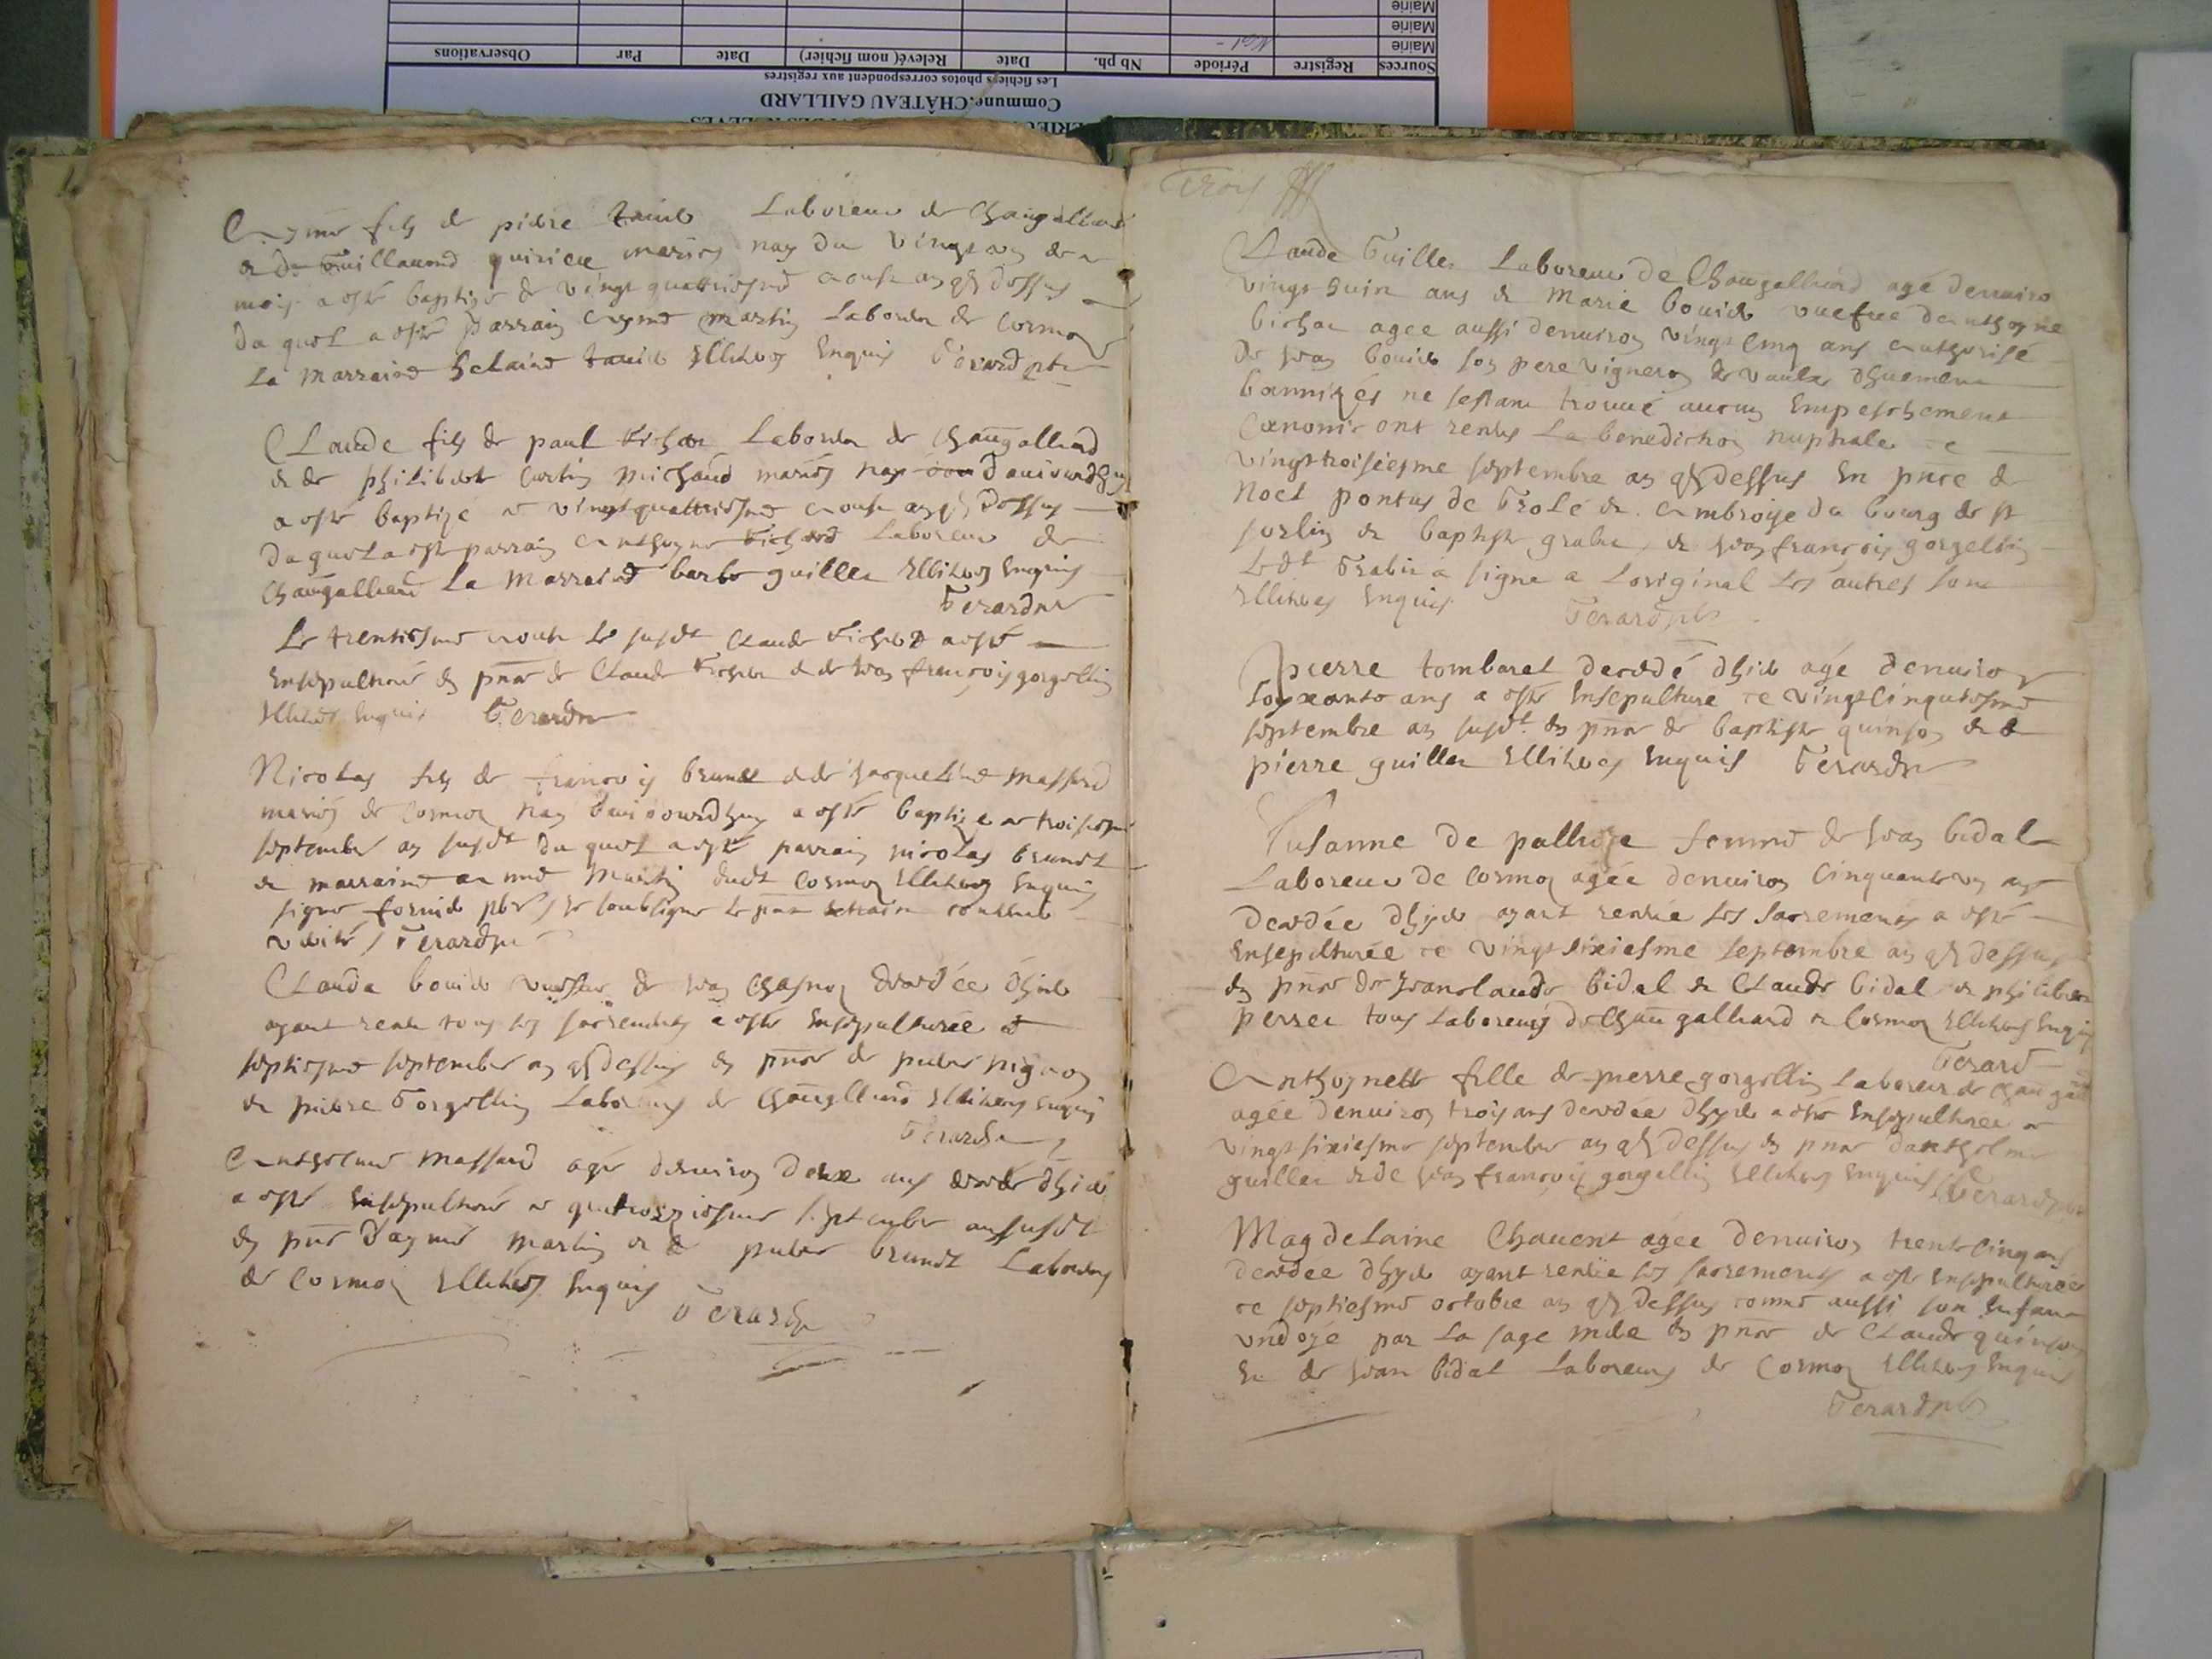 Mairie
Mairie
Mairie
Sources Registre Période Nb ph. Date Relevé( nom fichier) Date Par Observations
Les fichiers photos correspondent aux registres
Commune:CHÂTEAU GAILLARD
Aymé fils de pierre Laboreur de Changalliard
et de quirieu mariés nay du vingt un de ce
mois a esté baptizé ce vingt quattriesme aoust an q dessus
du quel a esté parrain Aymé Martin Laboreur de Cormoz
La Marraine helaine Illiteres Enquis Gerard ptre
Claude fils de paul Laboreur de Changalliard
et de philiberte Curtin Michaud mariés nay daujourdhuy
a esté baptizé ce vingt quattriesme aoust an q dessus
du quel a esté parrain Anthoyne Laboreur de
Changalliard La Marraine barbe guillet Illiteres Enquis
Gerard ptre
Le trentiesme aoust le susdt Claude a esté
Ensepulturé en pnce de Claude et de Jean françois gorgellin
Illiteres Enquis Gerard ptre
Nicolas fils de françois brunet et de Jacqueline Massard
mariés de Cormoz nay daujourdhuy a esté baptizé ce troisiesme
septembre an susdt du quel a esté parrain nicolas brunet
et marraine aymé Martin dudt Cormoz Illiteres Enquis
signé pbre soubsigné
Gerard ptre
Clauda bouvier veufve de Jean decedée
ayant rendu tous ses sacrements a esté Ensepulturée ce
septiesme septembre an q dessus en pnce de pierre pignon
et pierre Gorgellin Laboreurs de Changalliard Illiteres Enquis
Gerard
Anthoine Massard agé denviron deux ans decedé dhier
a esté Ensepulturé ce quatorziesme septembre an susdt
en pnce daymé Martin et de pierre brunet Laboreurs
de Cormoz Illiteres Enquis
Gerard
Trois
Claude Guillet Laboreur de Changalliard agé denviro
vingt huit ans et Marie bouvier vuefue danthoyne
bichat agee aussi denviron vingt cinq ans authorisé
de Jean bouvier son pere vigneron de vaulx dhuement
bannizés ne sestant trouvé aucun Empeschement
Canonic ont rendus La benediction nuptiale ce
vingttroisiesme septembre an q dessus En pnce de
Noel pontus de et Ambroise du bourg de st
sorlin et baptiste grabit et Jean françois gorgellin
Ledt Grabit a signé a Loriginal Les autres sont
Illiteres Enquis Gerard pbr
pierre tombarel decedé dhier agé denviron
soyxante ans a esté Ensepulturé ce vingtcinquiesme
septembre an susdt en pnce de baptiste quinson et de
pierre guillet Illiteres Enquis Gerard ptre
Susanne de femme de Jean bidal
Laboreur de Cormoz agée denviron Cinquante un ans
decedée dhyer ayant rendue ses sacrements a esté
Ensepulturée ce vingtsixiesme septembre an q dessus
en pnce de Jeanclaude bidal et Claude bidal et philibert
perret tous Laboreurs de Changalliard et Cormoz Illiteres Enquis
Gerard
Anthoynette fille de pierre gorgellin Laboreur de Changal
agée denviron trois ans decedée dhyer a esté Ensepulturee ce
vingt sixiesme septembre an q dessus en pnce danthelme
guillet et de Jean françois gorgellin Illiteres Enquis Gerard pbr
Magdelaine Chavent agée denviron trente cinq ans
decedée dhyer ayant rendue ses sacrements a esté Ensepulturée
ce septiesme octobre an q dessus comme aussi son Enfant
undoyé par La sage mere en pnce de Claude quinson
Et de Jean bidal Laboreurs de Cormoz Illiteres Enquis
Gerard pbr